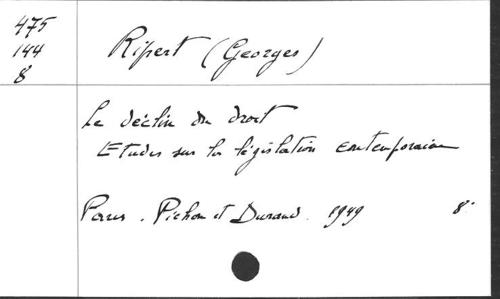 475
144
8
Ripert (Georges)
Le déclin du droit
Etudes sur la législation contemporaine
Paris. Pichon et Durand. 1949 8°